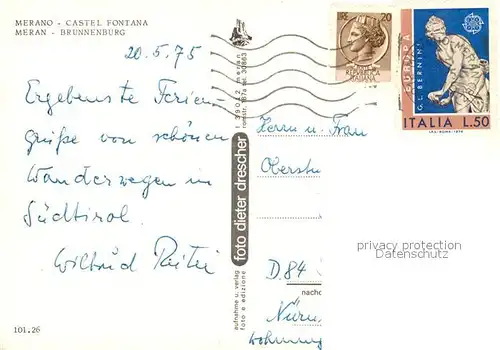 MERANO - CASTEL FONTANA
MERAN - BRUNNENBURG
20.5.75
Ergebenste Ferien-
grüße von schönen
Wanderwegen in
Südtirol
Wiltrud
101.26
foto dieter drescher
aufnahme u. verlag
foto e edizione
I 39012 meran
Herrn u. Frau
Oberstu
D. 84
nachd
Nürn
Wohnung
LIRE 20
REPUBBLICA
ITALIANA
EUROPA
G.L. BERNINI
ITALIA L.50
privacy protection
Datenschutz